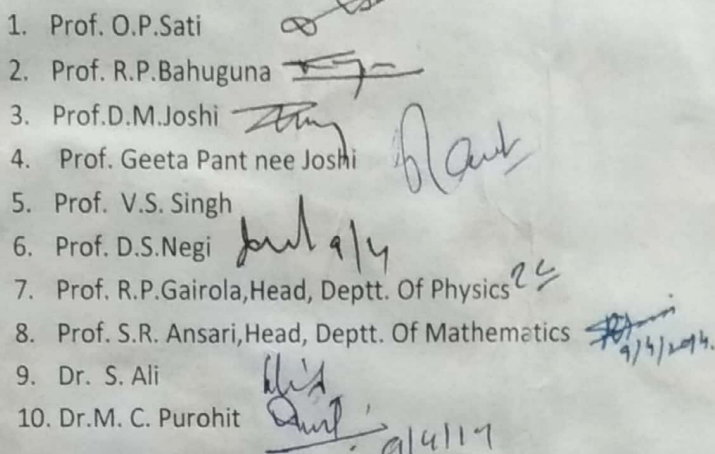 1. Prof. O.P.Sati
2. Prof. R.P.Bahuguna
3. Prof.D.M.Joshi
4. Prof. Geeta Pant nee Joshi
5. Prof. V.S. Singh
6. Prof. D.S.Negi 9/4
7. Prof. R.P.Gairola,Head, Deptt. Of Physics
8. Prof. S.R. Ansari,Head, Deptt. Of Mathematics
9/4/2014.
9. Dr. S. Ali
10. Dr.M. C. Purohit
9/4/14